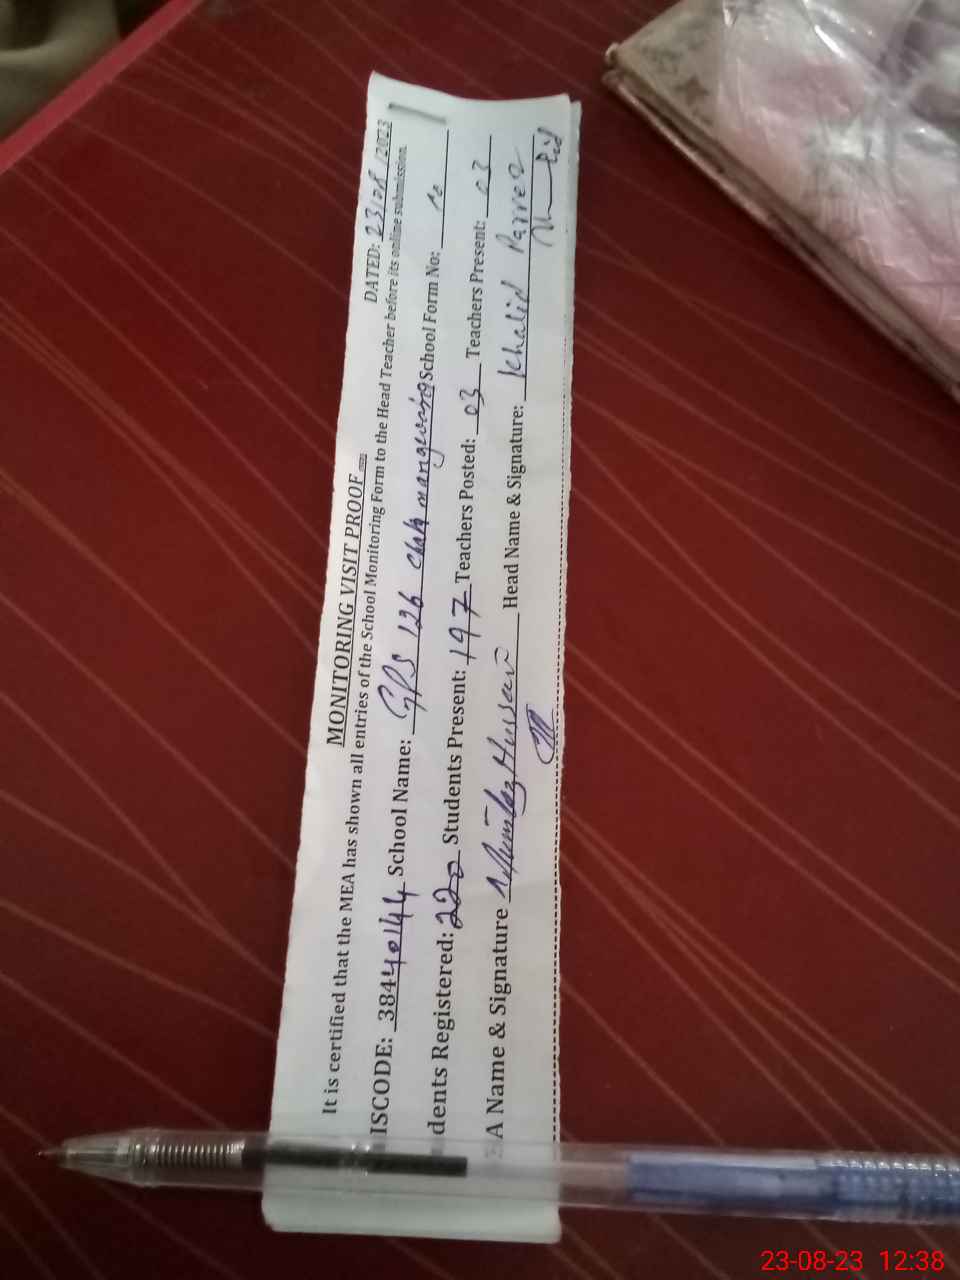 MONITORING VISIT PROOF
DATED: 23/08/2023
It is certified that the MEA has shown all entries of the School Monitoring Form to the Head Teacher before its online submission.
ISCODE: 38440144 School Name: GPS 126 Chak mangewala School Form No: 10
dents Registered: 220 Students Present: 197 Teachers Posted: 03 Teachers Present: 03
A Name & Signature Mumtaz Hussain Head Name & Signature: Khalid Parvez
23-08-23 12:38